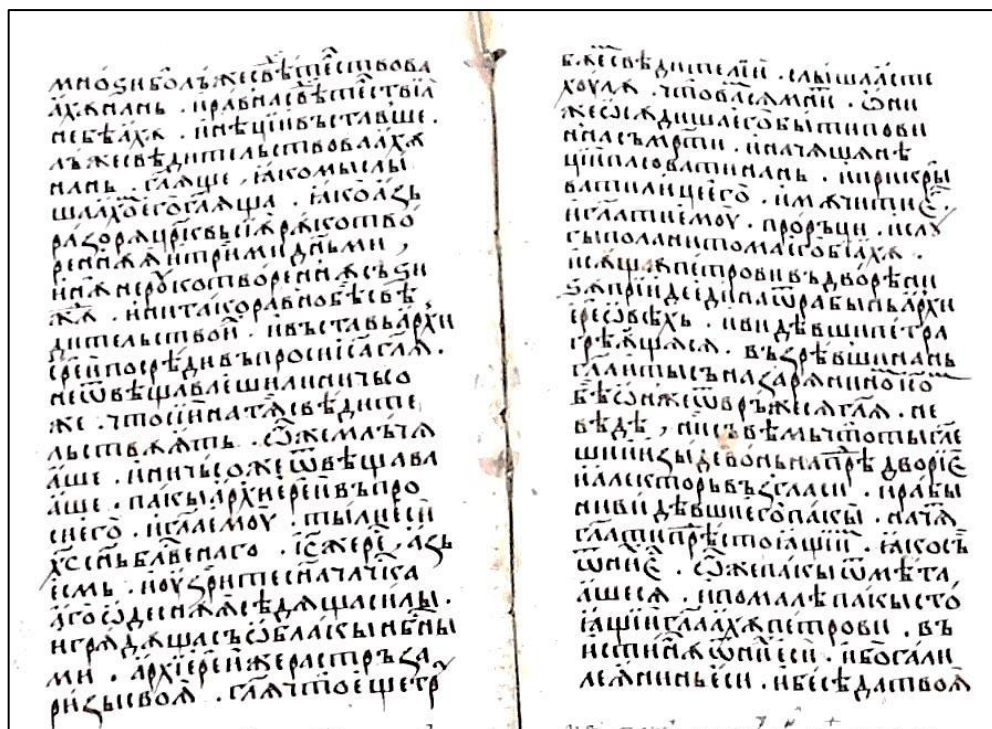 мно́ѕи бѡ̂ лъжесвѣ́те҇льствова
а́хѫ нань . и҆ ра́вна свѣ́те҇льствїа҆
не бѣа́хѫ . и҆ нѣ́цїи въставше .
лъжесвѣ́дительствоваа́хѫ
нань . гл҃ѧще , ꙗ҆ко мы слы
шахѡ́м е҆го̀ гл҃ѧща . ꙗ҆ко а҆́зь
разорѧ̀ цр҃ковь сїѧ̀ рѫкотво
ре́ннѫѧ и҆ три́ми дн҃ьми ,
и҆нѫ̀ нерꙋкотворе́ннѫ съѕи
жѫ̀ . и҆ ни та́ко равно̀ бѣ̀ свѣ
дительство и҆́хь . и҆ въставь а҆рхи
ере́й посре́дѣ въпроси і҆҃са гл҃ѧ .
не ѿвѣщаваеши ли ничьсо
же . что̀ сїи на тѧ̀ свѣ́дите
льствꙋѫть . ѡ҆́н же мльча́
а҆ше . и҆ ничьсоже ѿвѣщава
а҆ше . пакы а҆рхїере́й въпро
си е҆го̀ . и҆ гл҃а е҆мꙋ̀ . ты́ ли е҆сѝ
х҃с сн҃ь блг҃веннаго . і҆҃с же рече҇ , а҆́зь
е҆́смь . и҆ оу҆́зрите сн҃а чл҃чьска
а҆го ѡ҆деснѫѧ сѣдѧща си́лы .
и҆ грѧдѫща съ ѡ҆́блакы нб҃сны
ми . а҆рхїере́й же растръза
ри́зы своѧ̀ . гл҃ѧ что̀ е҆ще тре́
бꙋе҇м свѣ́дителей . слы́шаасте
хоулѫ . что̀ вамсѧ мни́т . ѡ҆ни
же ѡ҆сѫдиша е҆го̀ бы́ти пови
нна съмр҃ти . и҆ начѧшѧ нѣ
цїи пльвати нань . и҆ прикры
вати лице е҆го̀ . и҆ мѫчити е҆҇ .
и҆ гл҃ати е҆мꙋ . прорьци . и҆ слꙋ
гы по ланитома е҆го̀ бїахѫ .
и҆ сѫщꙋ петрови въ дворѣ ни
зꙋ прїи́де е҆ди́на ѿ рабынь а҆рхи
е҆ре́ѡвѣхь . и҆ ви́дѣвши петра
грѣѫщасѧ . възрѣвши нань
гл҃а и҆ ты̀ съ назарѧнином і҆҃сѡм
бѣ̀ ѡ҆́н же ѿвръжесѧ гл҃ѧ . не
вѣдѣ , ни съвѣмь что̀ ты̀ гл҃е
ши и҆ изы́де вонь на прѣ́дворїе҇
и҆ а҆лекторь възгласи . и҆ рабы
ни ви́дѣвши е҆го̀ пакы . начѧ́т
гл҃ати прѣстоꙗ҆щїи҆м . ꙗ҆ко сь̀
ѿ ни́х е҆҇ . ѡ҆́н же пакы ѿмѣта
а҆шесѧ . и҆ по малѣ пакы сто
ꙗ҆щїи҆ гл҃аахѫ петрови . въ
и҆стинѫ ѿ ни́х е҆сѝ . и҆бо гали
леѧнинь е҆си . и҆ бесѣда твоѧ̀